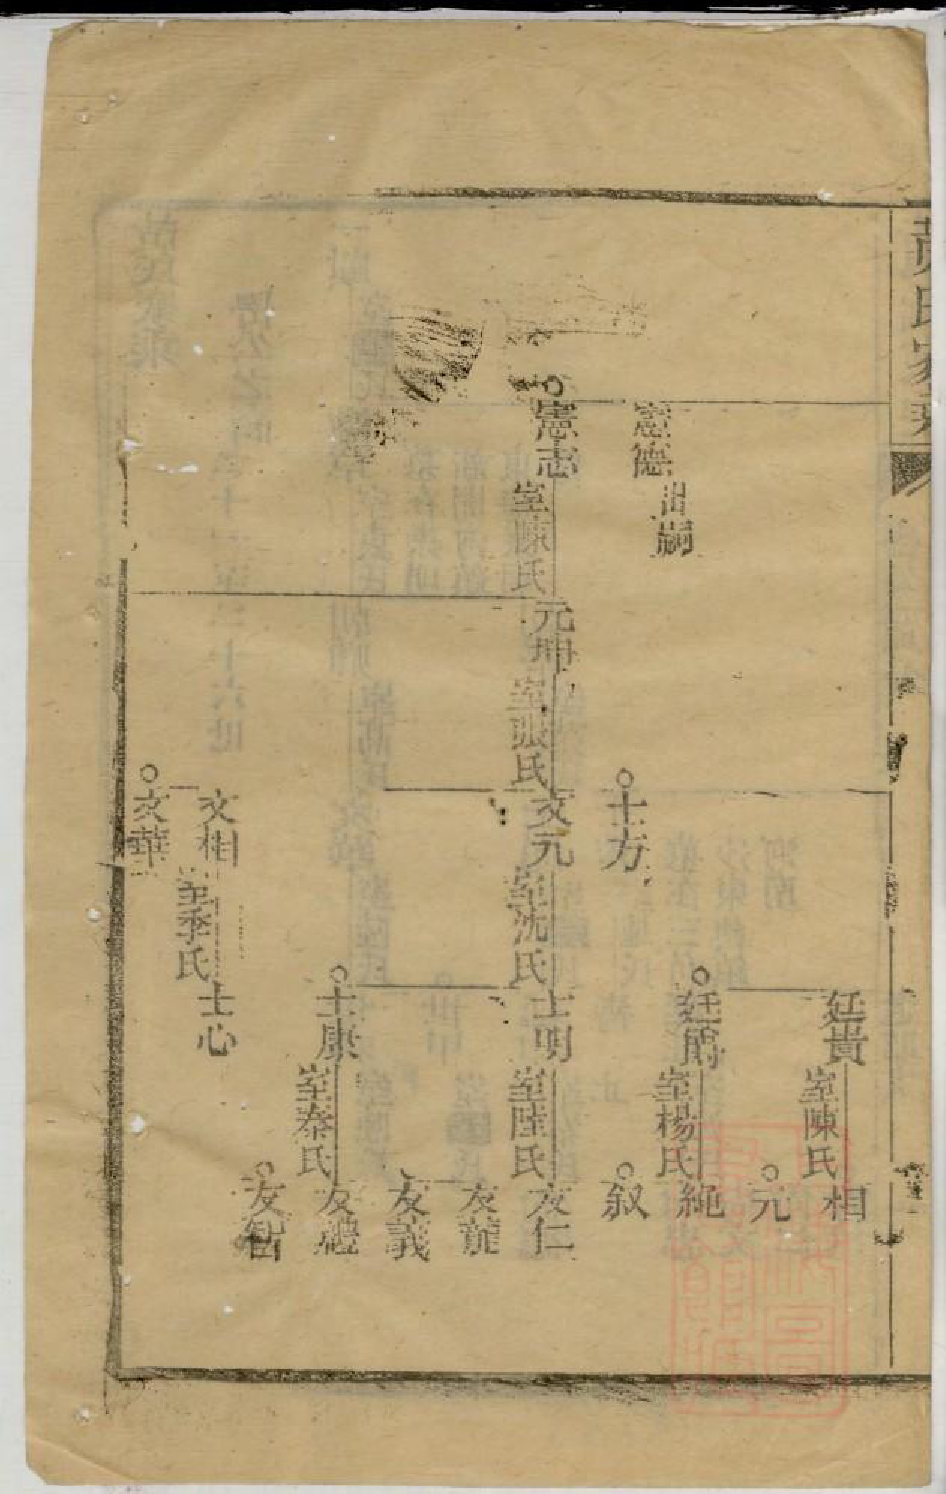 黃氏家
憲德
出嗣
憲志
室陳氏
元坤
室張氏
士方
文元
室沈氏
文相
室季氏
文華
廷貴
室陳氏
廷爵
室楊氏
士明
室陸氏
士康
室秦氏
士心
相
元
繩
叙
友仁
友龍
友義
友禮
友智